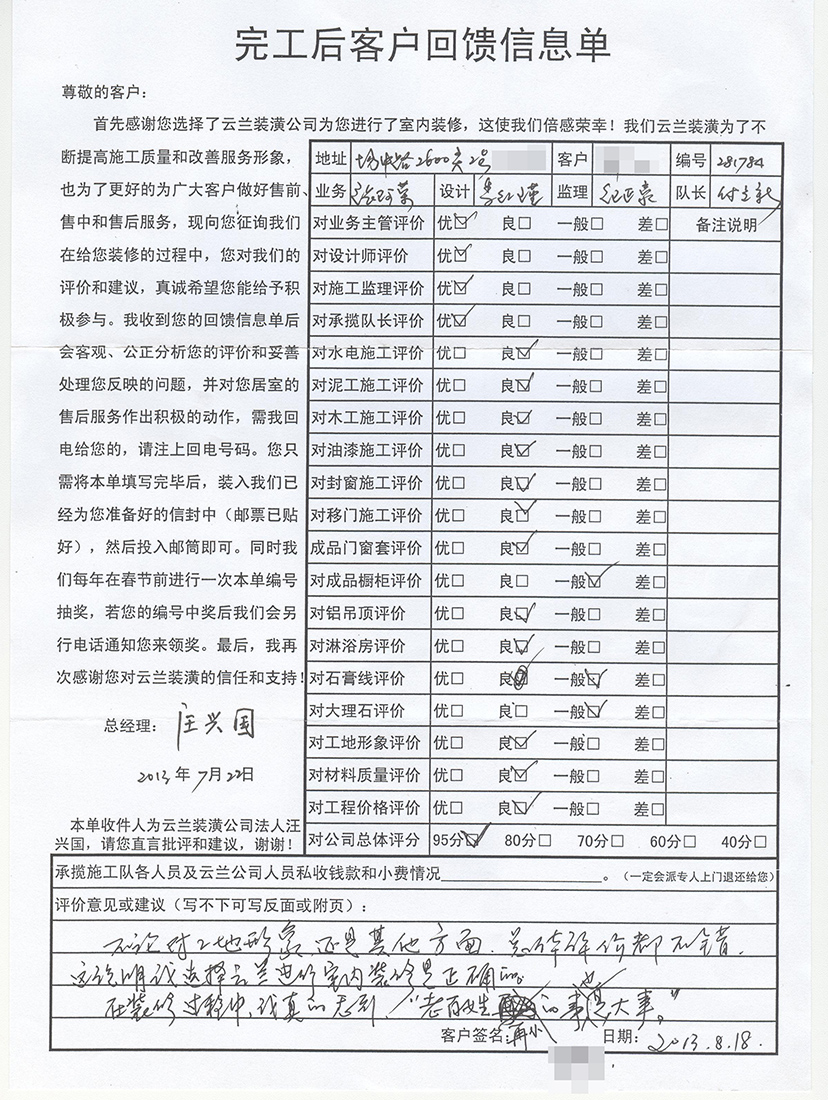 完工后客户回馈信息单
尊敬的客户：
首先感谢您选择了云兰装潢公司为您进行了室内装修，这使我们倍感荣幸！我们云兰装潢为了不
断提高施工质量和改善服务形象，
也为了更好的为广大客户做好售前、
售中和售后服务，现向您征询我们
在给您装修的过程中，您对我们的
评价和建议，真诚希望您能给予积
极参与。我收到您的回馈信息单后
会客观、公正分析您的评价和妥善
处理您反映的问题，并对您居室的
售后服务作出积极的动作，需我回
电给您的，请注上回电号码。您只
需将本单填写完毕后，装入我们已
经为您准备好的信封中（邮票已贴
好），然后投入邮筒即可。同时我
们每年在春节前进行一次本单编号
抽奖，若您的编号中奖后我们会另
行电话通知您来领奖。最后，我再
次感谢您对云兰装潢的信任和支持！
总经理：汪兴国
2013年7月22日
本单收件人为云兰装潢公司法人汪
兴国，请您直言批评和建议，谢谢！
地址 场中路2600弄2号 客户 编号 281784
业务 设计 监理 队长
对业务主管评价 优☑ 良□ 一般□ 差□ 备注说明
对设计师评价 优☑ 良□ 一般□ 差□
对施工监理评价 优☑ 良□ 一般□ 差□
对承揽队长评价 优☑ 良□ 一般□ 差□
对水电施工评价 优□ 良☑ 一般□ 差□
对泥工施工评价 优□ 良☑ 一般□ 差□
对木工施工评价 优□ 良☑ 一般□ 差□
对油漆施工评价 优□ 良☑ 一般□ 差□
对封窗施工评价 优□ 良☑ 一般□ 差□
对移门施工评价 优□ 良☑ 一般□ 差□
成品门窗套评价 优□ 良☑ 一般□ 差□
对成品橱柜评价 优□ 良□ 一般☑ 差□
对铝吊顶评价 优□ 良☑ 一般□ 差□
对淋浴房评价 优□ 良☑ 一般□ 差□
对石膏线评价 优□ 良 一般☑ 差□
对大理石评价 优□ 良□ 一般☑ 差□
对工地形象评价 优□ 良☑ 一般□ 差□
对材料质量评价 优□ 良☑ 一般□ 差□
对工程价格评价 优□ 良☑ 一般□ 差□
对公司总体评分 95分☑ 80分□ 70分□ 60分□ 40分□
承揽施工队各人员及云兰公司人员私收钱款和小费情况____________________。（一定会派专人上门退还给您）
评价意见或建议（写不下可写反面或附页）：
不论对工地形象还是其他方面，总体评价都不错。
这说明我选择云兰进行室内装修是正确的。
在装修过程中，我真的感到，“老百姓的事是大事。”
客户签名： 日期：2013.8.18.